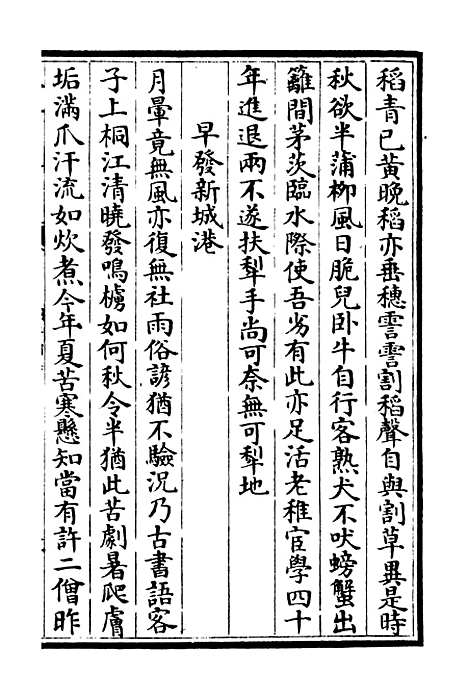 稻青已黃晚稻亦垂穗霅霅割稻聲自與割草異是時
秋欲半蒲柳風日脆兒卧牛自行客熟犬不吠螃蟹出
籬間茅茨臨水際使吾劣有此亦足活老稚宦學四十
年進退兩不遂扶犁手尚可奈無可犁地
早發新城港
月暈竟無風亦復無社雨俗諺猶不驗況乃古書語客
子上桐江清曉發鳴櫓如何秋令半猶此苦劇暑爬膚
垢滿爪汗流如炊煮今年夏苦寒懸知當有許二僧昨